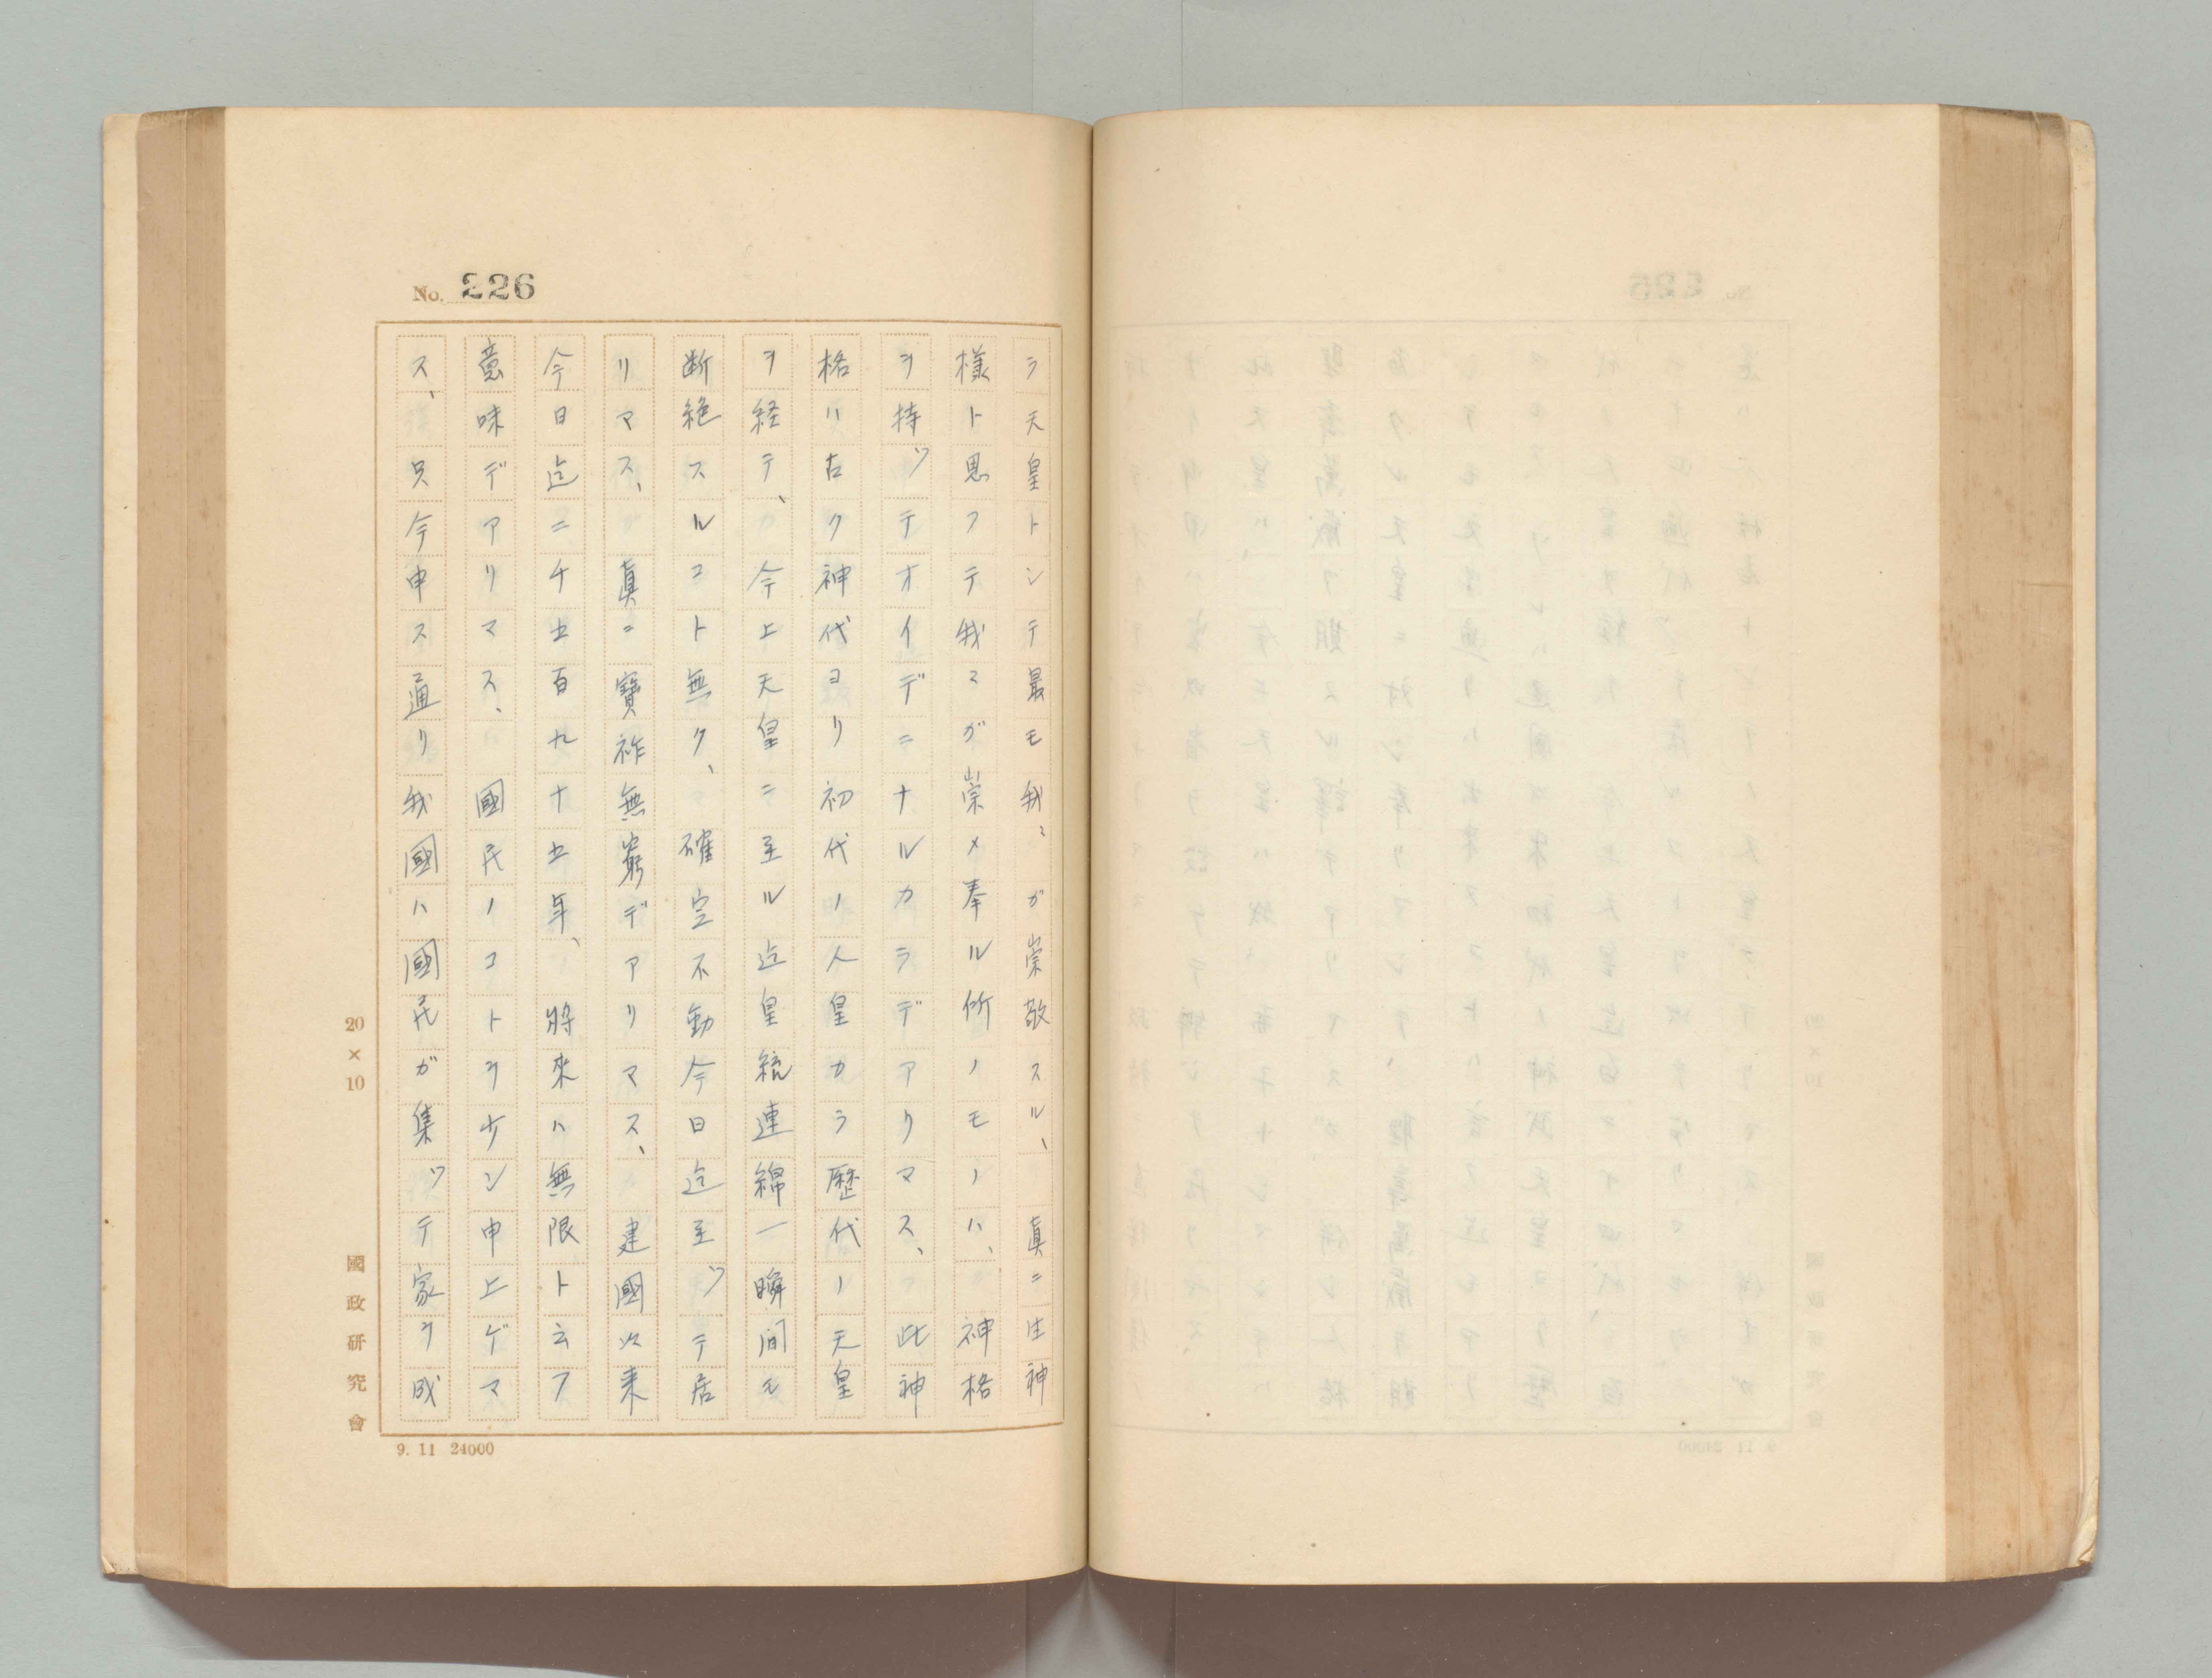 No. 226
ラ天皇トシテ最モ我々ガ崇敬スル、真ニ生神
様ト思フテ我々ガ崇メ奉ル所ノモノハ、神格
ヲ持ツテオイデニナルカラデアリマス、此神
格ハ古ク神代ヨリ初代ノ人皇カラ歴代ノ天皇
ヲ経テ、今上天皇ニ至ル迄皇統連綿一瞬間モ
断絶スルコト無ク、確定不動今日迄至ツテ居
リマス、真ニ寶祚無窮デアリマス、建國以来
今日迄ニ千五百九十五年、將來ハ無限ト云フ
意味デアリマス、國民ノコトヲ少シ申上ゲマ
ス、只今申ス通リ我國ハ國民ガ集ツテ家ヲ成
20×10
國政研究會
9. 11 24000